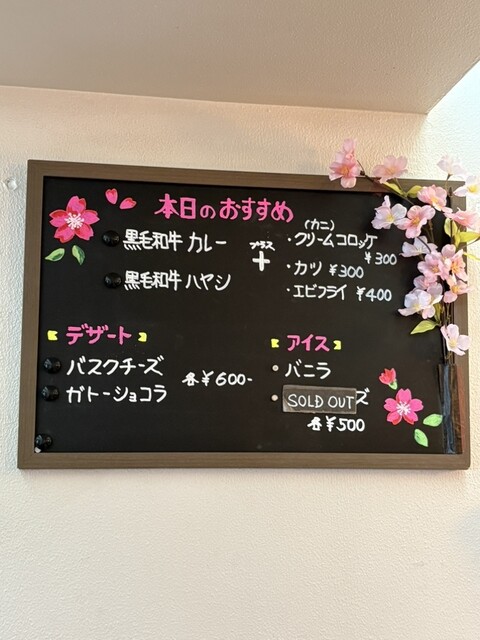 本日のおすすめ
黒毛和牛 カレー
黒毛和牛 ハヤシ
プラス
+
(カニ)
・クリームコロッケ
¥300
・カツ ¥300
・エビフライ ¥400
デザート
バスクチーズ
ガトーショコラ
各¥600-
アイス
バニラ
SOLD OUT ズ
各¥500